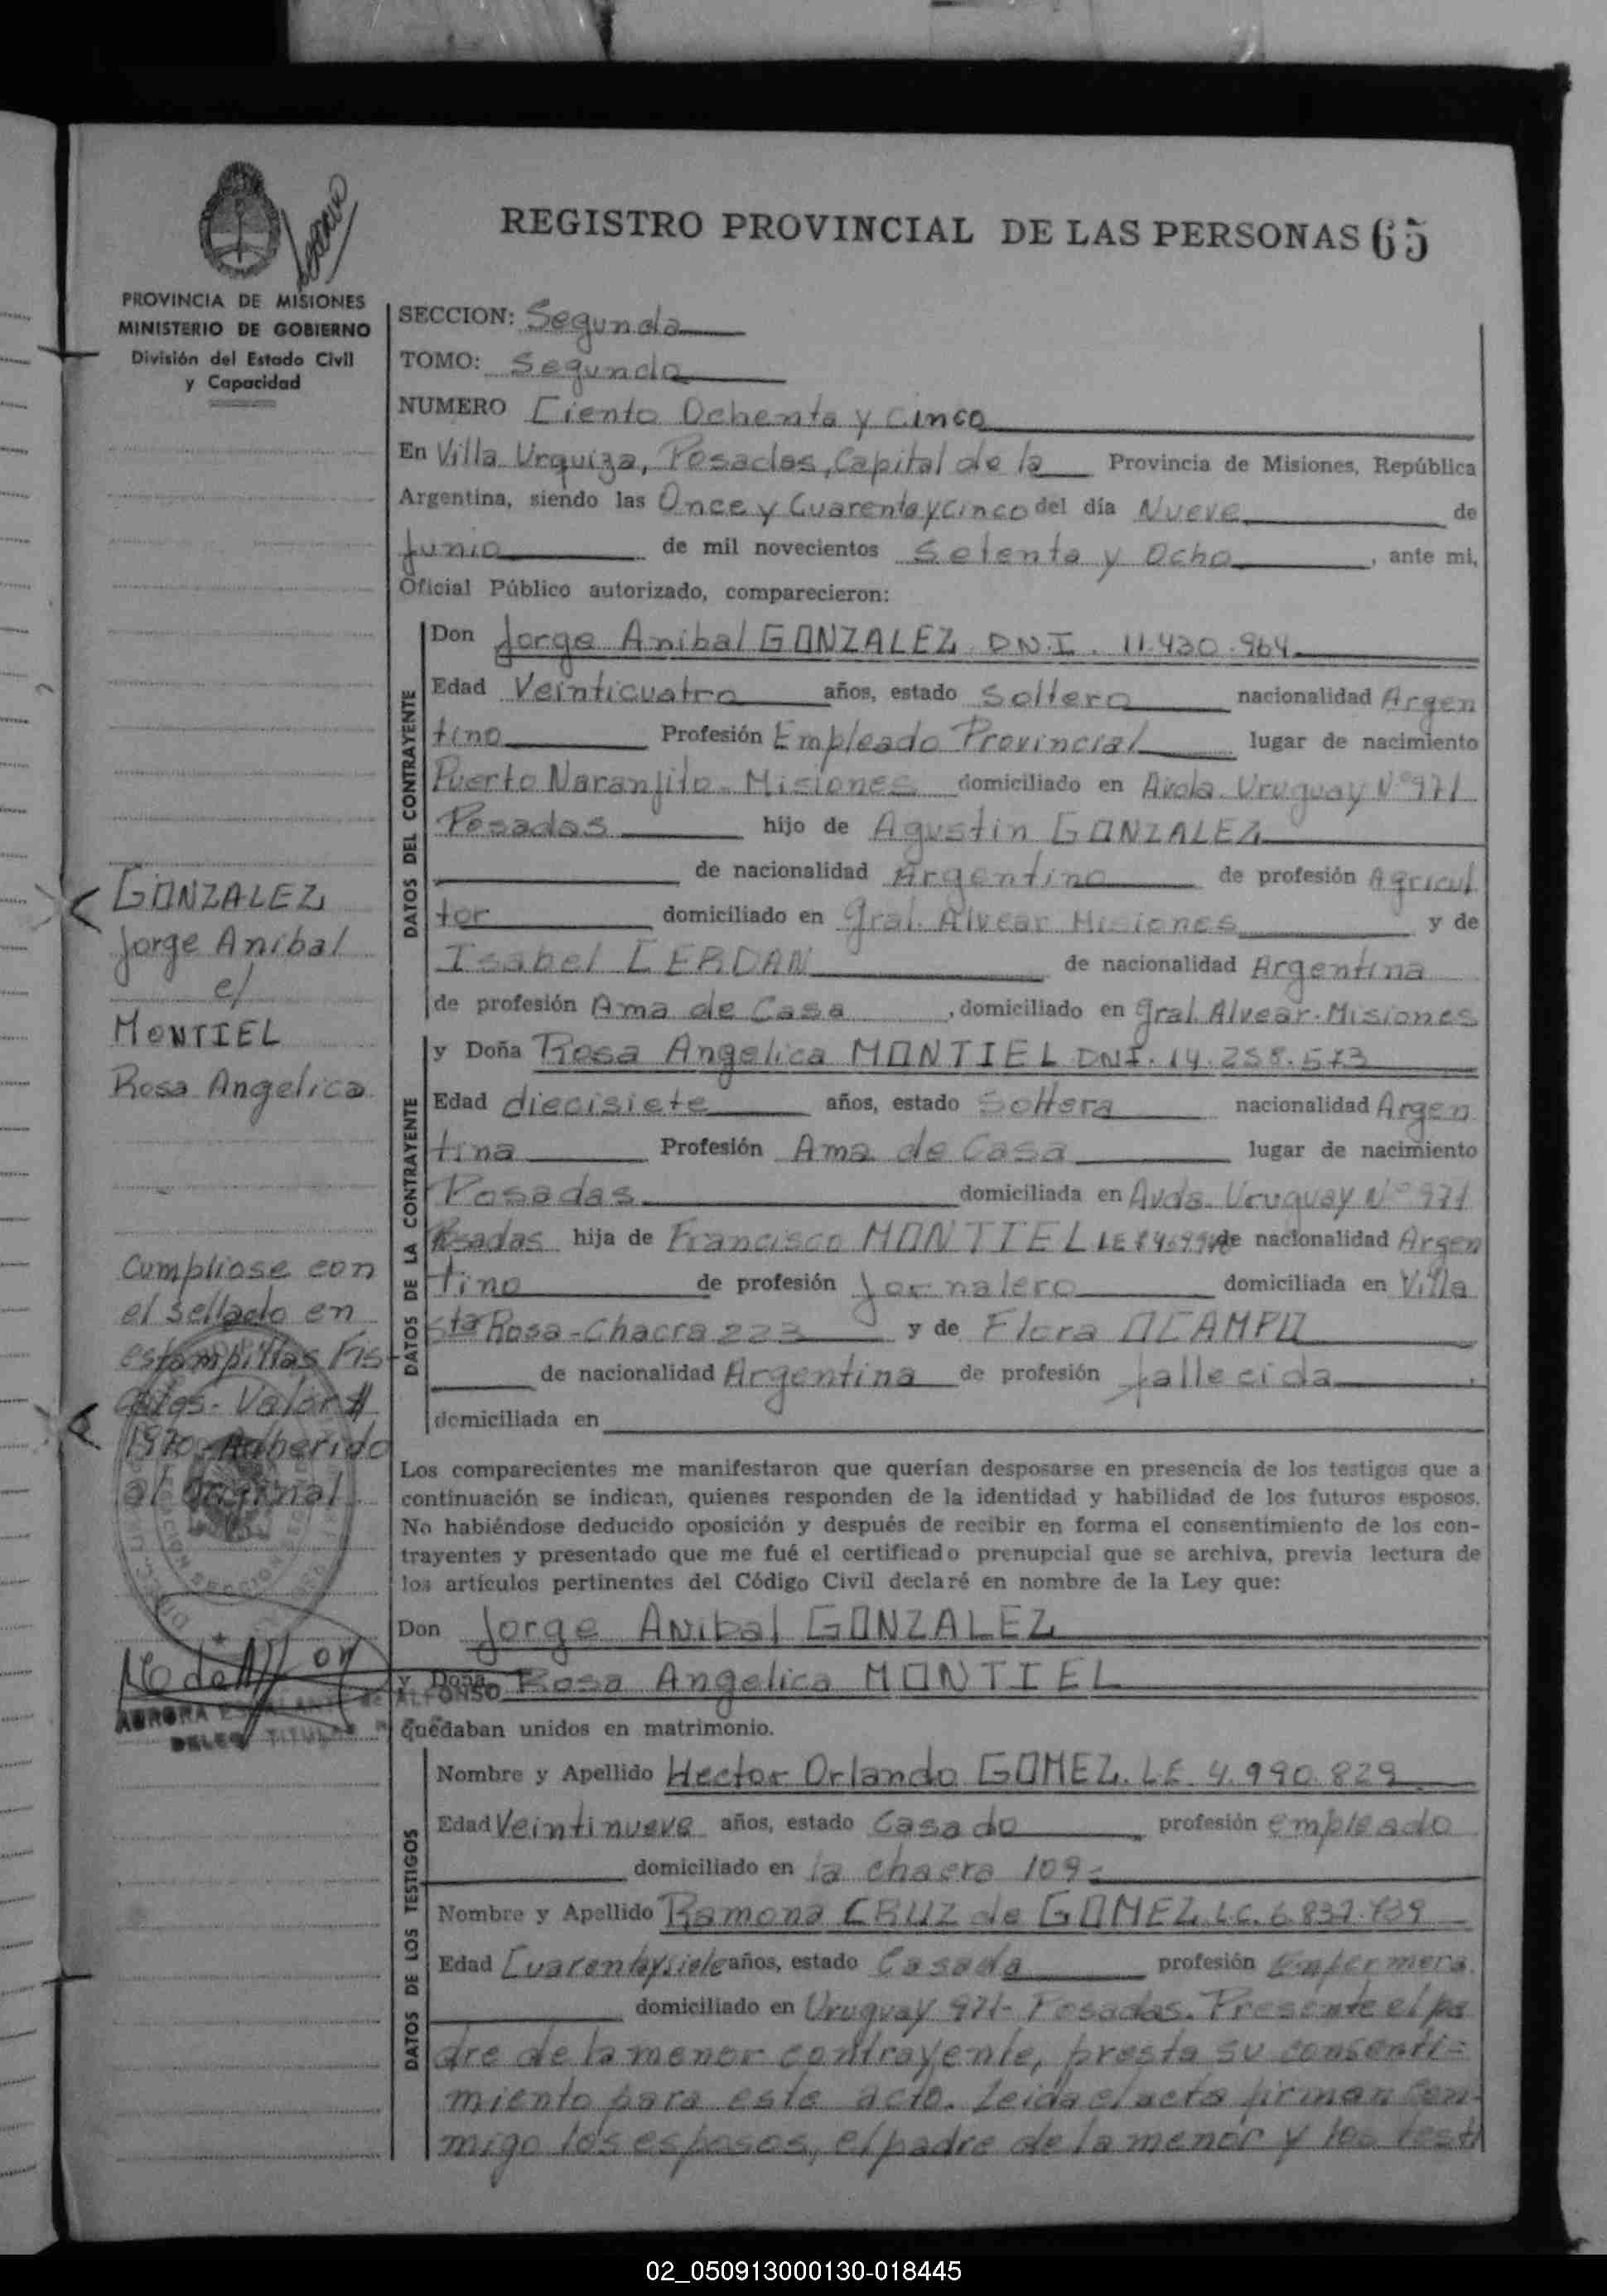 REGISTRO PROVINCIAL DE LAS PERSONAS 65
PROVINCIA DE MISIONES
MINISTERIO DE GOBIERNO
División del Estado Civil
y Capacidad
SECCION: Segunda
TOMO: Segundo
NUMERO Ciento Ochenta y Cinco
En Villa Urquiza, Posadas, Capital de la Provincia de Misiones, República
Argentina, siendo las Once y Cuarenta y cinco del día Nueve de
Junio de mil novecientos Setenta y Ocho, ante mi,
Oficial Público autorizado, comparecieron:
DATOS DEL CONTRAYENTE
Don Jorge Anibal GONZALEZ DN.I. 11.430.964
Edad Veinticuatro años, estado Soltero nacionalidad Argen
tino Profesión Empleado Provincial lugar de nacimiento
Puerto Naranjito - Misiones domiciliado en Avda. Uruguay Nº 971
Posadas hijo de Agustin GONZALEZ
de nacionalidad Argentino de profesión Agricul
tor domiciliado en Gral. Alvear Misiones y de
Isabel CERDAN de nacionalidad Argentina
de profesión Ama de Casa, domiciliado en Gral. Alvear - Misiones
GONZALEZ
Jorge Anibal
c/
MONTIEL
Rosa Angelica
DATOS DE LA CONTRAYENTE
y Doña Rosa Angelica MONTIEL DNI. 14.258.573
Edad diecisiete años, estado Soltera nacionalidad Argen
tina Profesión Ama de Casa lugar de nacimiento
Posadas domiciliada en Avda. Uruguay Nº 971
Posadas hija de Francisco MONTIEL LE de nacionalidad Argen
tino de profesión Jornalero domiciliada en Villa
Sta Rosa - Chacra 223 y de Flora OCAMPO
de nacionalidad Argentina de profesión fallecida,
domiciliada en
Cumpliose con
el sellado en
estampillas Fis
cales - Valor $
1970 - Adherido
al Original
Los comparecientes me manifestaron que querían desposarse en presencia de los testigos que a
continuación se indican, quienes responden de la identidad y habilidad de los futuros esposos.
No habiéndose deducido oposición y después de recibir en forma el consentimiento de los con-
trayentes y presentado que me fué el certificado prenupcial que se archiva, previa lectura de
los artículos pertinentes del Código Civil declaré en nombre de la Ley que:
Don Jorge Anibal GONZALEZ
y Doña Rosa Angelica MONTIEL
quedaban unidos en matrimonio.
AURORA de ALFONSO
TITULAR
DATOS DE LOS TESTIGOS
Nombre y Apellido Hector Orlando GOMEZ. LE 4.990.829
Edad Veintinueve años, estado Casado profesión empleado
domiciliado en la chacra 109
Nombre y Apellido Ramona CRUZ de GOMEZ L.C. 6.837.739
Edad Cuarenta y siete años, estado Casada profesión Enfermera.
domiciliado en Uruguay 971 - Posadas. Presente el pa
dre de la menor contrayente, presta su consenti=
miento para este acto. Leida el acta firman con-
migo los esposos, el padre de la menor y los testi
02_050913000130-018445